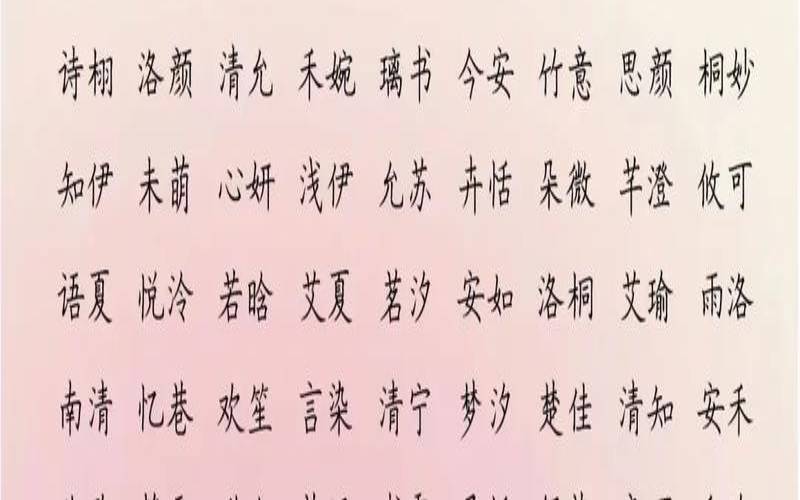 诗栩 洛颜 清允 禾婉 璃书 今安 竹意 思颜 桐妙
知伊 未萌 心妍 浅伊 允苏 卉恬 朵微 芊澄 攸可
语夏 悦泠 若晗 艾夏 茗汐 安如 洛桐 艾瑜 雨洛
南清 忆巷 欢笙 言染 清宁 梦汐 楚佳 清知 安禾